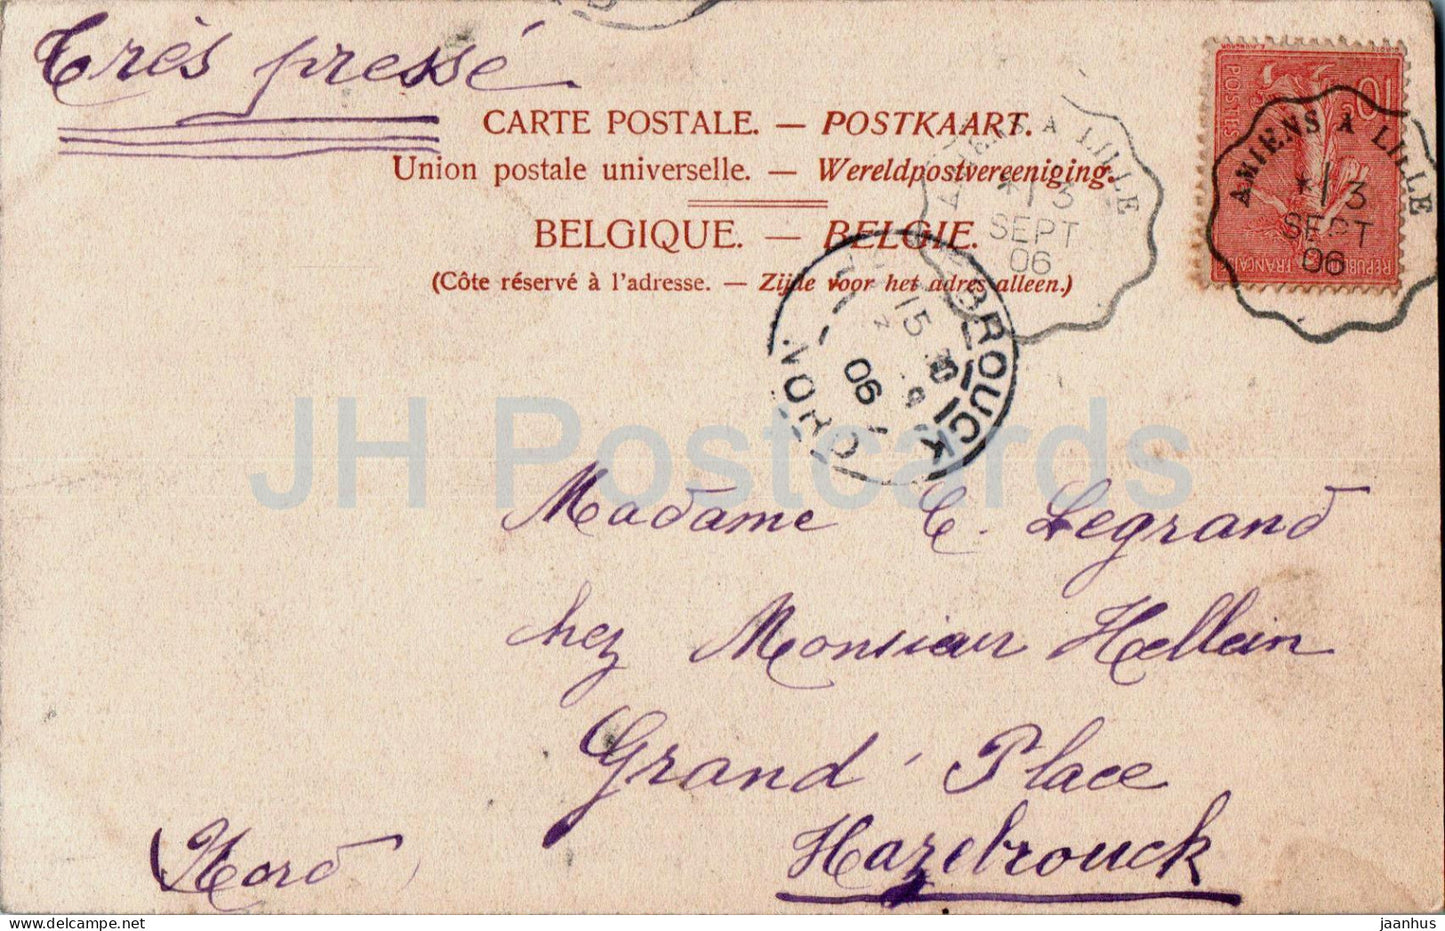 Très pressé
CARTE POSTALE. — POSTKAART.
Union postale universelle. — Wereldpostvereeniging.
BELGIQUE. — BELGIE.
(Côte réservé à l'adresse. — Zijde voor het adres alleen.)
POSTES
10
REPUBLIQUE FRANÇAISE
AMIENS A LILLE
* 13
SEPT
06
AMIENS A LILLE
* 13
SEPT
06
BROUCK
15
06
NORD
JH Postcards
Madame C. Legrand
chez Monsieur Hellein
Grand' Place
Hazebrouck
(Nord)
jaanhus